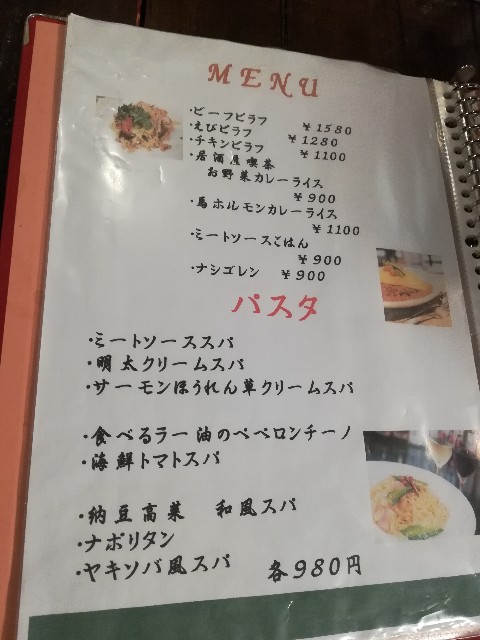 MENU
・ビーフピラフ ￥1580
・えびピラフ ￥1280
・チキンピラフ ￥1100
・居酒屋喫茶
お野菜カレーライス
￥900
・馬ホルモンカレーライス
￥1100
・ミートソースごはん
￥900
・ナシゴレン ￥900
パスタ
・ミートソーススパ
・明太クリームスパ
・サーモンほうれん草クリームスパ
・食べるラー油のペペロンチーノ
・海鮮トマトスパ
・納豆高菜 和風スパ
・ナポリタン
・ヤキソバ風スパ 各980円